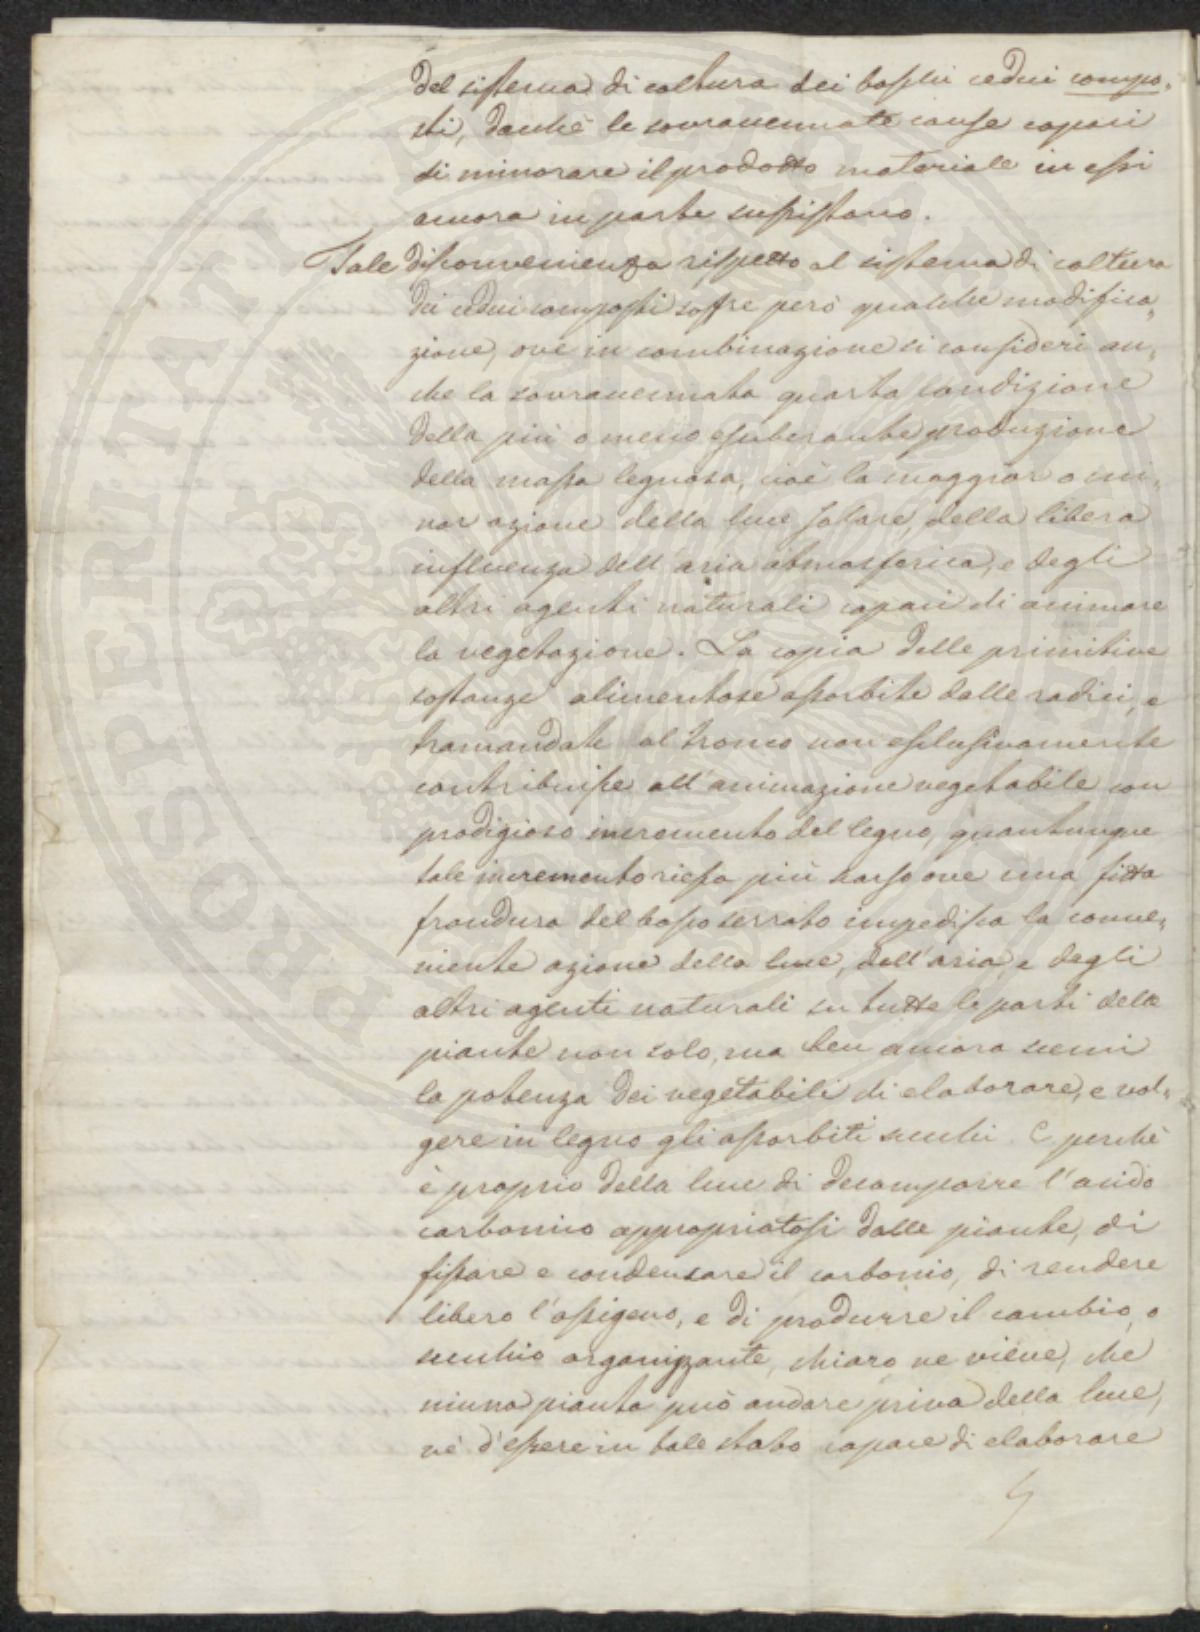 del sistema di coltura dei boschi cedui compo,
sti, dachè le sovraccennate cause capaci
di minorare il prodotto materiale in essi
ancora in parte sussistano.
Tale disconvenienza rispetto al sistema di coltura
dei cedui composti soffre però qualche modifica,
zione, ove in combinazione si consideri an,
che la sovraccennata quarta condizione
della più o meno esuberante produzione
della massa legnosa, cioè la maggior o mi,
nor azione della luce solare, della libera
influenza dell'aria atmosferica, e degli
altri agenti naturali capaci di animare
la vegetazione. La copia delle primitive
sostanze alimentose assorbite dalle radici, e
tramandate al tronco non esclusivamente
contribuisce all'animazione vegetabile con
prodigioso incremento del legno, quantunque
tale incremento riesca più scarso ove una fitta
frondura del bosco serrato impedisca la conve,
niente azione della luce, dell'aria, e degli
altri agenti naturali su tutte le parti delle
piante non solo, ma ben ancora scemi
la potenza dei vegetabili di elaborare, e vol,
gere in legno gli assorbiti succhi. E perchè
è proprio della luce di decomporre l'acido
carbonico appropriatosi dalle piante, di
fissare e condensare il carbonio, di rendere
libero l'ossigeno, e di produrre il cambio, o
succhio organizzante, chiaro ne viene, che
niuna pianta può andare priva della luce,
nè d'essere in tale stato capace di elaborare
PROSPERITATI PUBLICAE